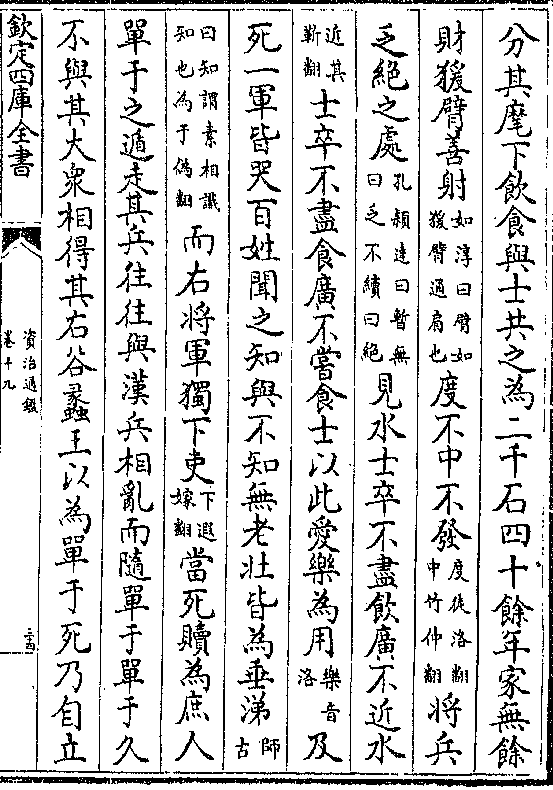 分其麾下飲食與士共之為二千石四十餘年家無餘
財猨臂善射如淳曰臂如猨臂通肩也度不中不發度徒洛翻中竹仲翻將兵
乏絕之處孔穎達曰暫無曰乏不續曰絕見水士卒不盡飲廣不近水
近其靳翻士卒不盡食廣不嘗食士以此愛樂為用樂音洛及
死一軍皆哭百姓聞之知與不知無老壯皆為垂涕師古
曰知謂素相識知也為于偽翻而右將軍獨下吏下遐嫁翻當死贖為庶人
單于之遁走其兵往往與漢兵相亂而隨單于單于久
不與其大衆相得其右谷蠡王以為單于死乃自立
欽定四庫全書
資治通鑑
卷十九